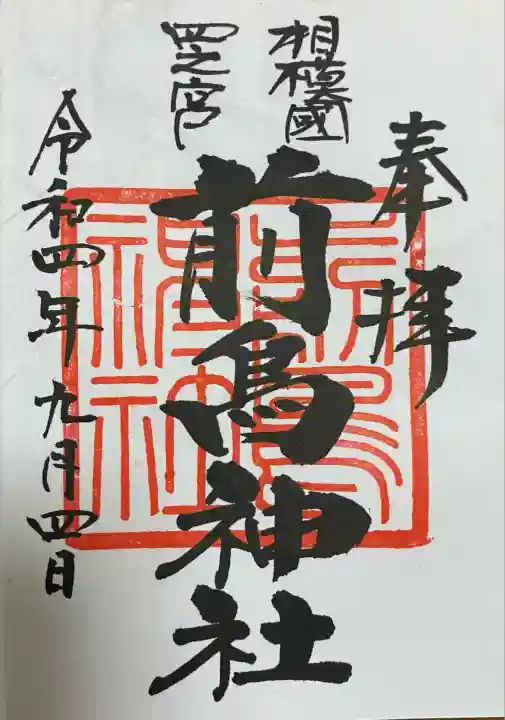 奉拝
相模國
四之宮
前鳥神社
令和四年九月四日